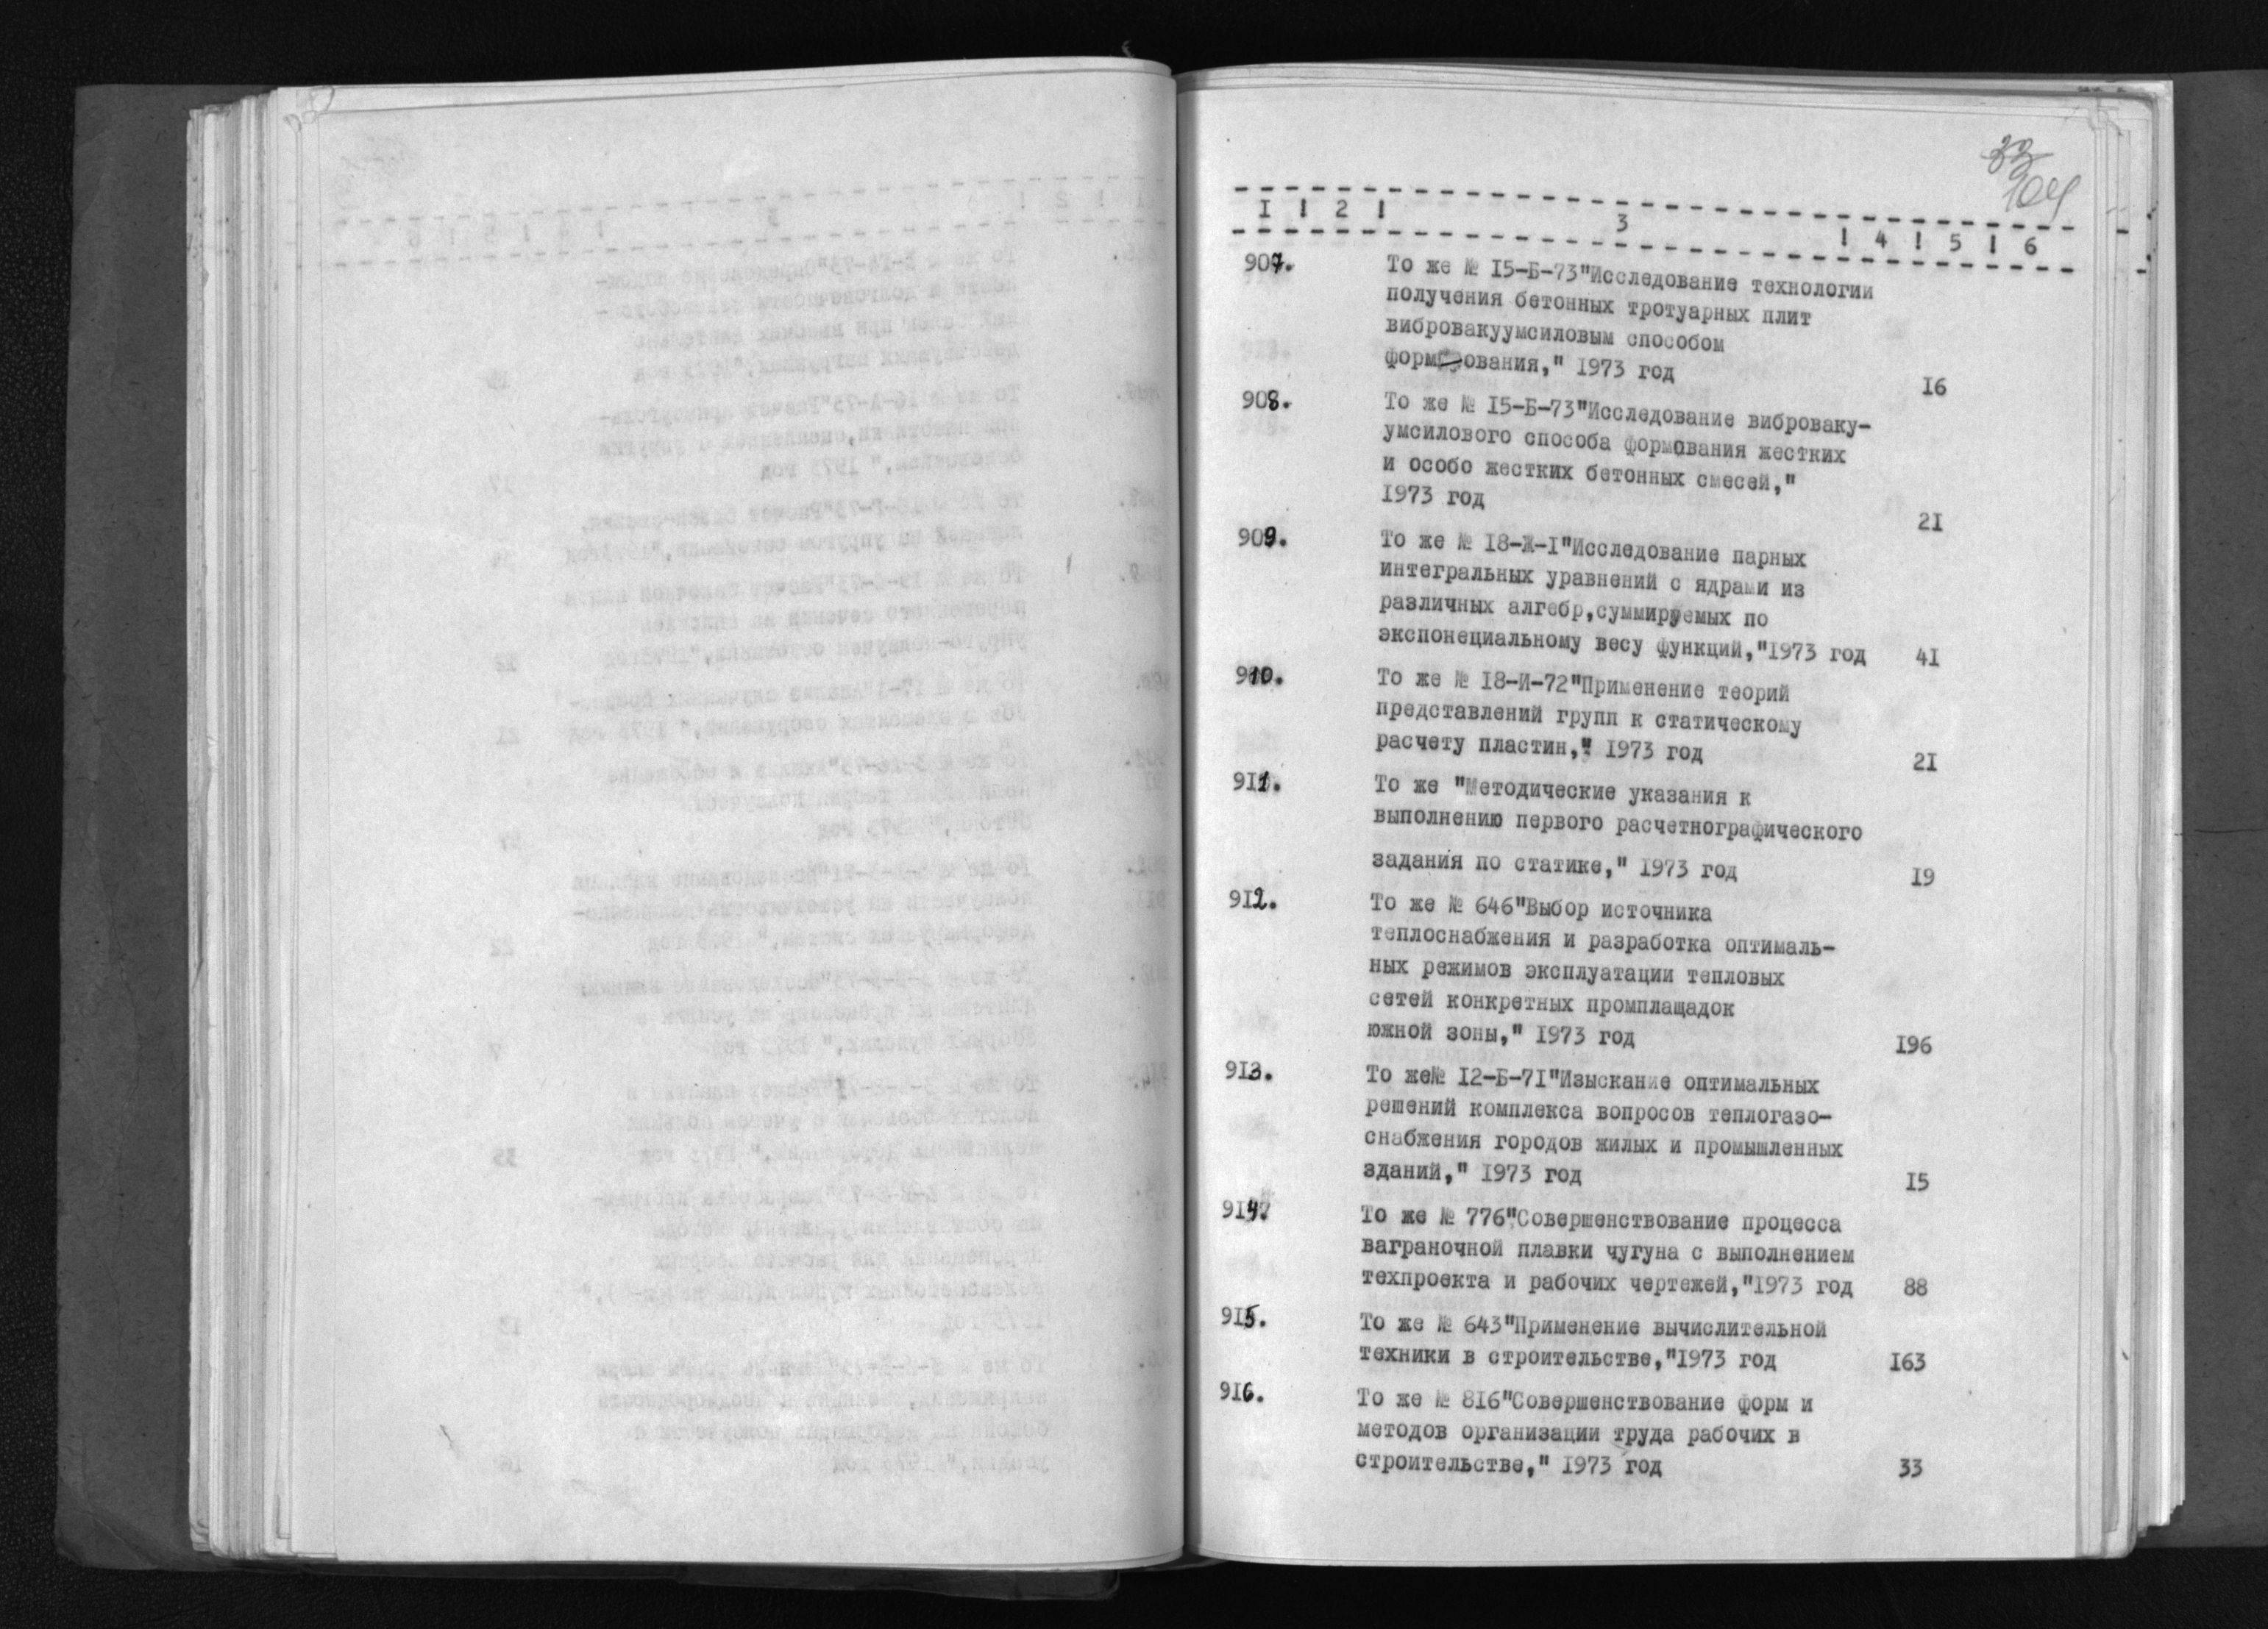 33
104
I ! 2 ! 3 ! 4 ! 5 ! 6
907. То же № I5-Б-73"Исследование технологии
получения бетонных тротуарных плит
вибровакуумсиловым способом
формования," I973 год I6
908. То же № I5-Б-73"Исследование виброваку-
умсилового способа формования жестких
и особо жестких бетонных смесей,"
I973 год 2I
909. То же № I8-Ж-I"Исследование парных
интегральных уравнений с ядрами из
различных алгебр,суммируемых по
экспонециальному весу функций,"I973 год 4I
910. То же № I8-И-72"Применение теорий
представлений групп к статическому
расчету пластин," I973 год 2I
9I1. То же "Методические указания к
выполнению первого расчетнографического
задания по статике," I973 год I9
9I2. То же № 646"Выбор источника
теплоснабжения и разработка оптималь-
ных режимов эксплуатации тепловых
сетей конкретных промплащадок
южной зоны," I973 год I96
9I3. То же№ I2-Б-7I"Изыскание оптимальных
решений комплекса вопросов теплогазо-
снабжения городов жилых и промышленных
зданий," I973 год I5
9I4. То же № 776"Совершенствование процесса
ваграночной плавки чугуна с выполнением
техпроекта и рабочих чертежей,"I973 год 88
9I5. То же № 643"Применение вычислительной
техники в строительстве,"I973 год I63
9I6. То же № 8I6"Совершенствование форм и
методов организации труда рабочих в
строительстве," I973 год 33